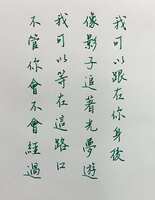 我可以跟在你身後
像影子追著光夢遊
我可以等在這路口
不管你會不會經過